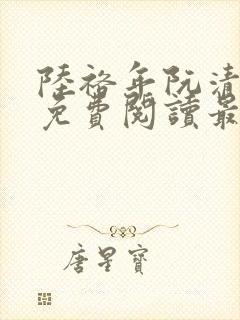 陸裕年阮清
免費閱讀最
唐星寶